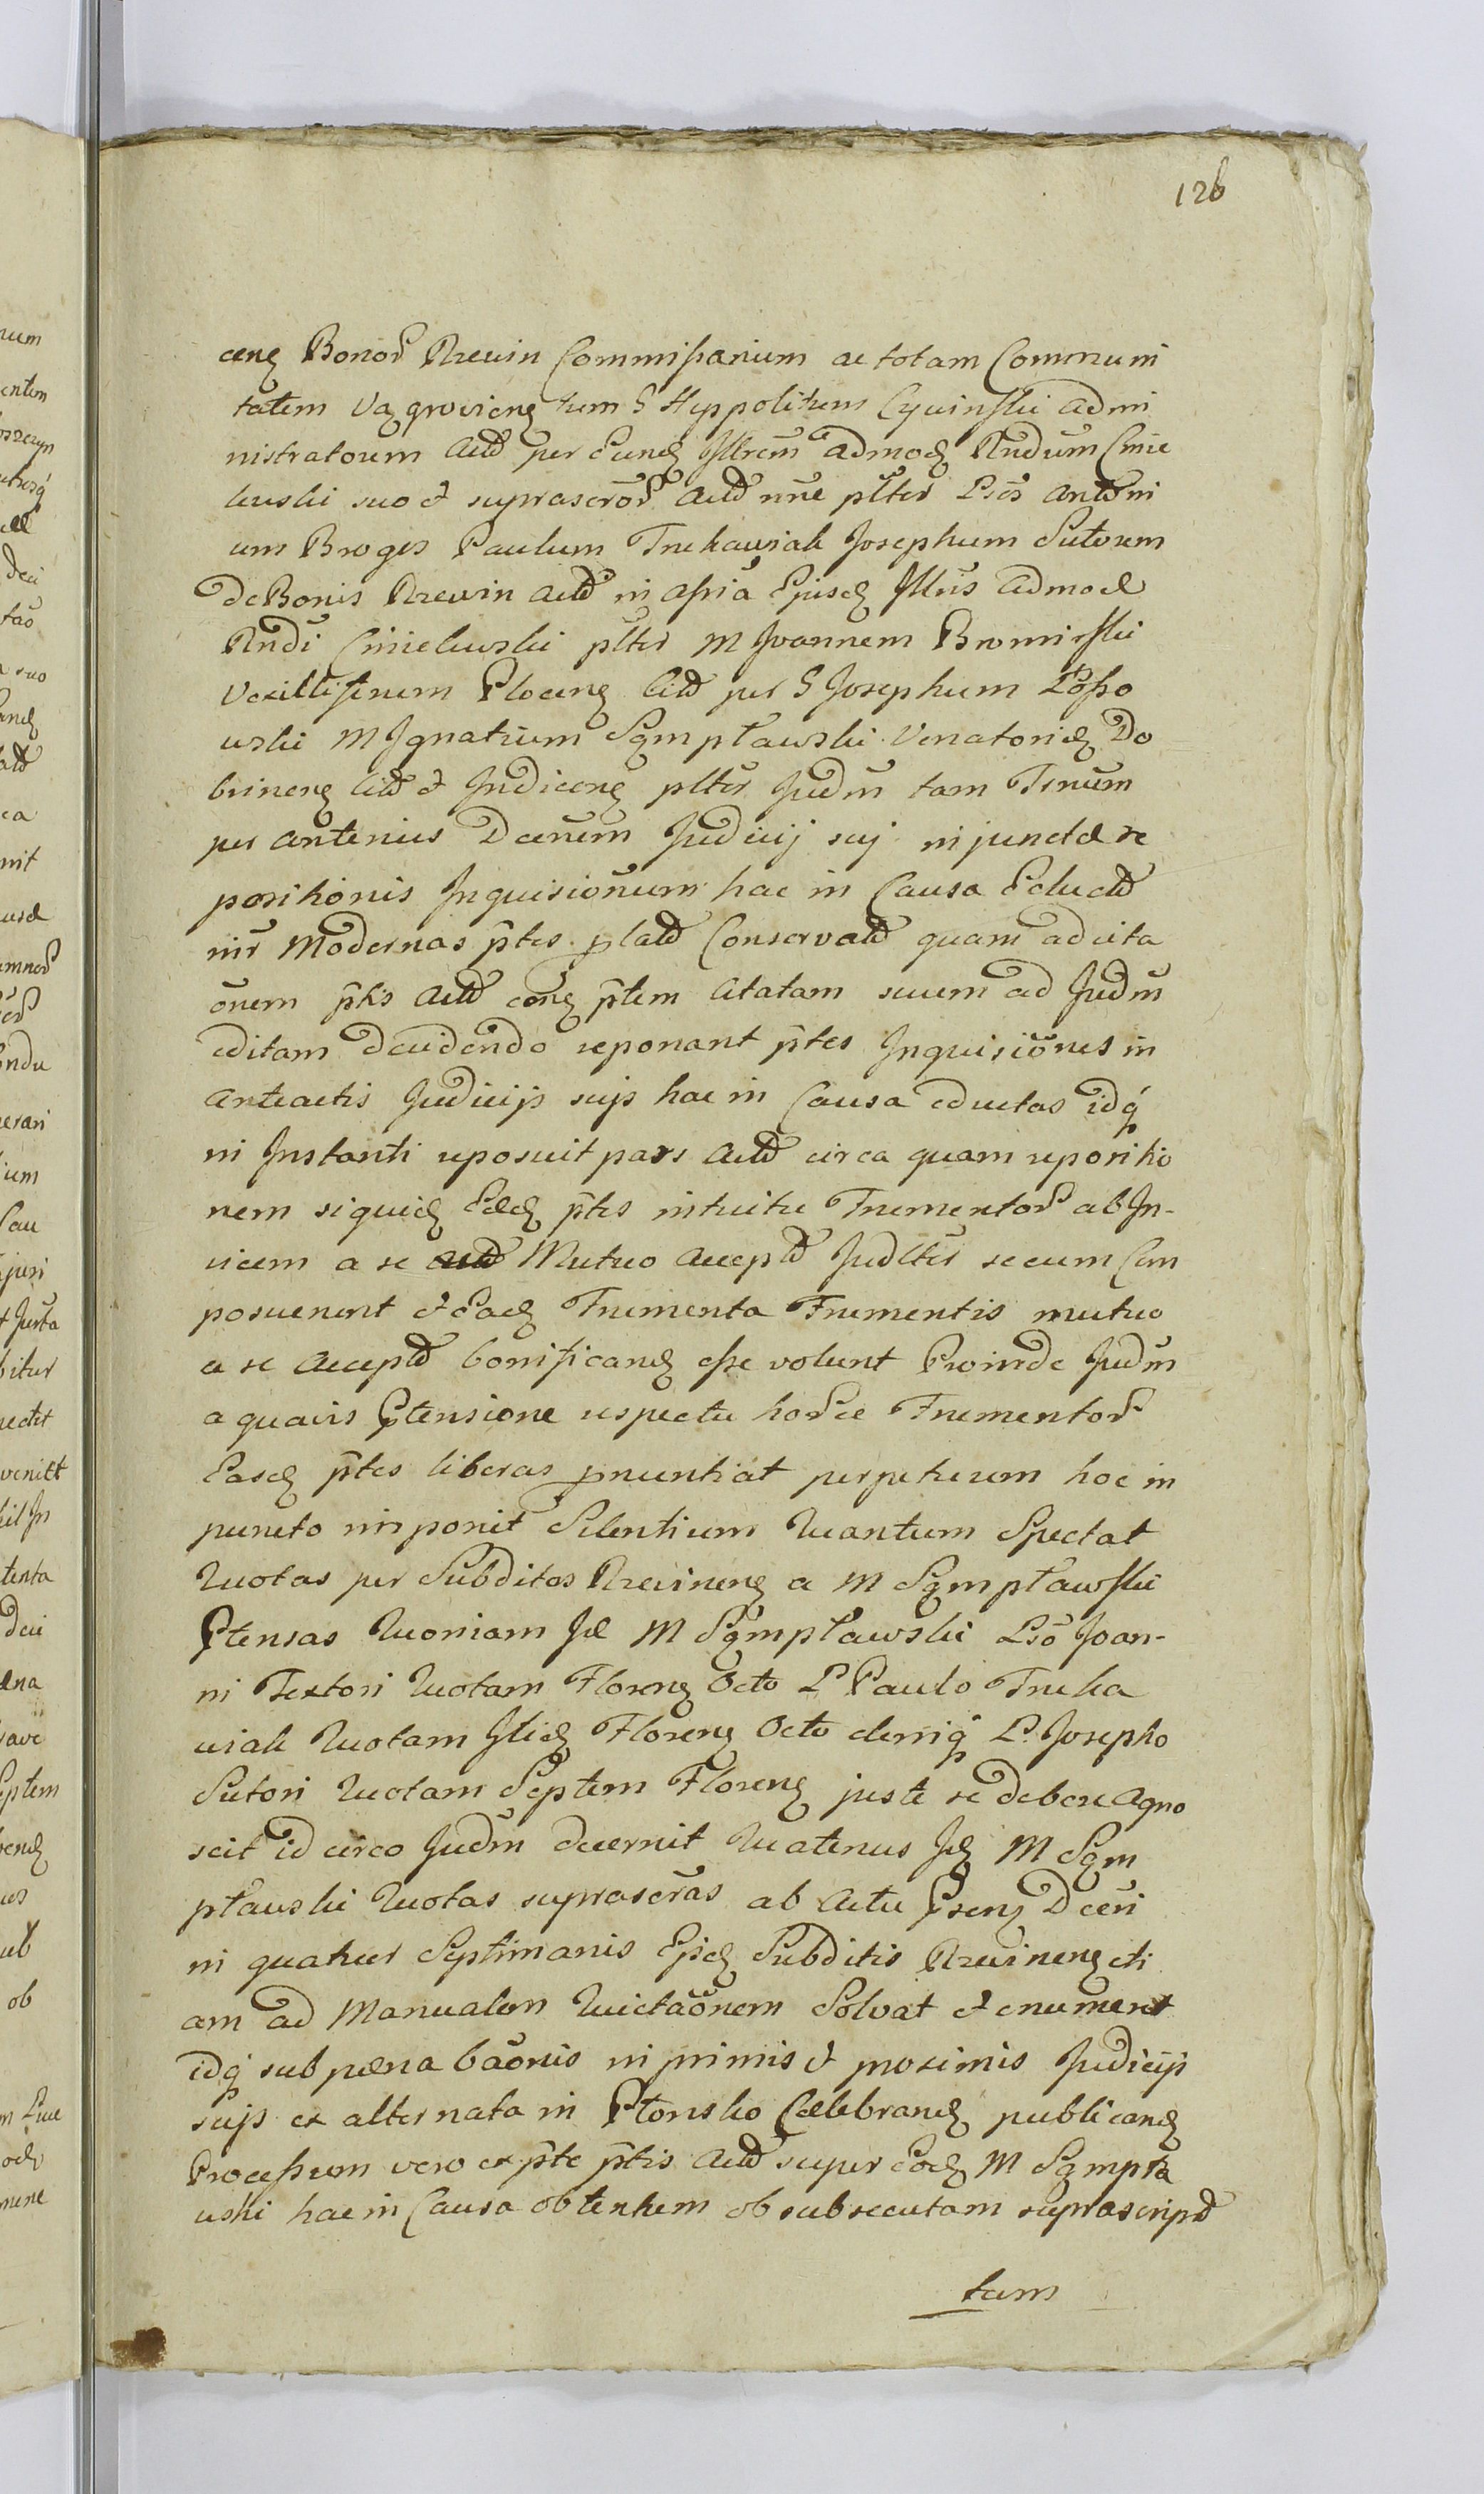 126
ceng Bonor Rzewin Commissarium ac totam Communi
tatem Vągrowieng tum G Hyppolitum Cywinski admi
nistratorem Actd per Eundq Illrem admodq Rndum Cmie
lewski suo et suprascror Actd nne plter Lsos Antoni
um Broges Paulum Truhawiak Josephum Sutorem
de Bonis Rzewin Actd in assia Ejusdq Illris admod
Rndi Cmielewski plter M Joannem Bromirski
Vexilliferum Ploceng Citd per G Josephum Losso
wski M Ignatium Sąmpławski Venatoridq Do
brineng Citd et Indiceng plter Judm tam Trnum
per anterius Dcenum Judicij sui injunctæ re
positionis Inquisionum hac in Causa Eductd
inr Modernas ptes platd Conservatd quam ad cita
onem ptis Actd cong ptem Citatam suum ad Judm
editam decidendo reponant ptes Inquisiones in
anteactis Judicijs sujs hac in Causa eductas idq
in Instanti reposuit pars Actd circa quam repositio
nem siquidq Eædq ptes intuitu Frumentor ab In-
vicem a se Mutuo accepta Judltr secum Com
posuerunt et Eadq Frumenta Frumentis mutuo
a se acceptd bonificandq esse volunt Proinde Judm
a quavis Ptensione respectu horce Frumentor
Easdq ptes liberas pnuntiat perpetuum hoc in
puncto imponit Silentium Quantum Spectat
Quotas per Subditos Rzewineng a M Sąmpławski
Ptensas Quoniam Id M Sąmpławski Lso Joan-
ni Textori Quotam Floreng Octo L Paulo Truha
wiak Quotam Itidq Floreng Octo deniq L. Josepho
Sutori Quotam Septem Floreng juste se debere Agno
scit id circo Judm decernit Quatenus Idq M Sąm
pławski Quotas suprascras ab Actu Pseng Dceri
in quatuor Septimanis Ejsdq Subditis Rzewineng eti
am ad Manualem Quietaonem Solvat et enumeret
idq sub pæna baonis in primis et proximis Judicijs
sujs ex alternata in Płonsko Cælebrandq publicandq
Processum vero ex pte ptis Actd super Eodq M Sąmpła
wski hac in Causa obtentum ob subsecutam suprascriptd
tam